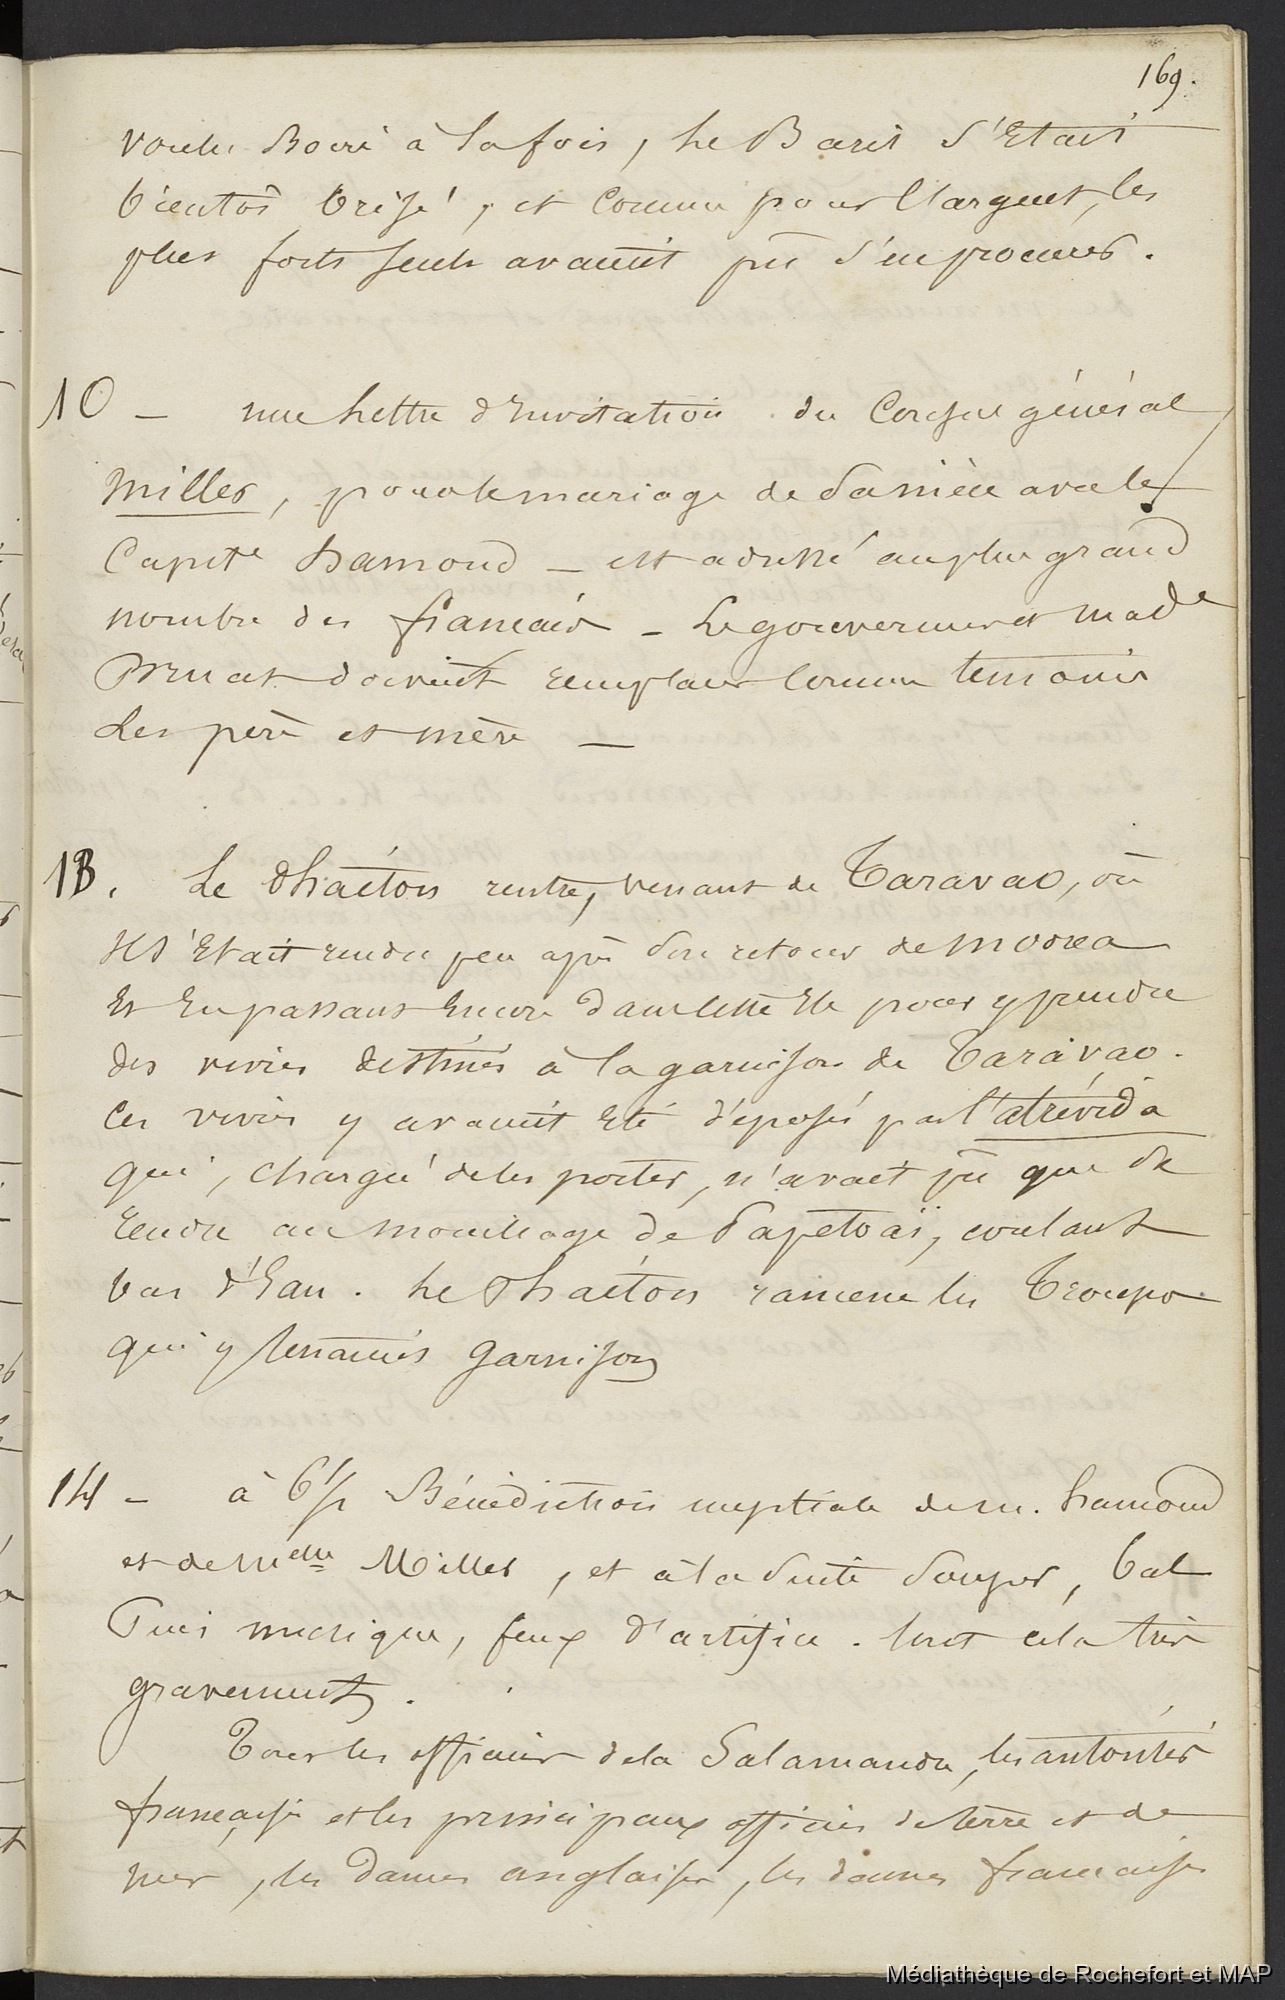 169.
voulu Boire à la fois, le Baril s'Etait
bientôt brisé, et comme pour l'argent, les
plus forts seuls avaient pu s'en procurer.
10 — une lettre d'Invitation du Consul général
Miller, pour le mariage de sa nièce avec le
Capite hamond — est adressé au plus grand
nombre des français — Le gouverneur et made
Bruat doivent remplacer comme temoins
les père et mère —
13. Le Phaéton rentre, venant de Taravao, où
il s'Etait rendu peu après son retour de moorea
Et En passant Encore dans cette Ile pour y prendre
des vivres destinés à la garnison de Taravao.
Ces vivres y avaient Eté déposés par l'atrévida
qui, chargé de les porter, n'avait pu que se
rendre au mouillage de Papetoaï, coulant
bas d'Eau. Le Phaéton ramene les Troupes
qui y tenaient garnison
14 — à 6h Bénédiction nuptiale de m. hamond
et de melle Miller, et à la suite souper, bal
Puis musique, feux d'artifice. tout cela très
gravement.
Tous les officiers de la Salamandre, les autorités
françaises et les principaux officiers de terre et de
mer, les dames anglaises, les dames françaises
Médiathèque de Rochefort et MAP